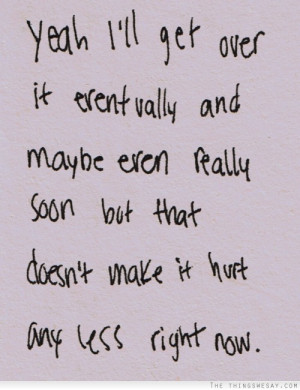 Yeah I'll get over
it eventually and
maybe even really
soon but that
doesn't make it hurt
any less right now.
THETHINGSWESAY.COM